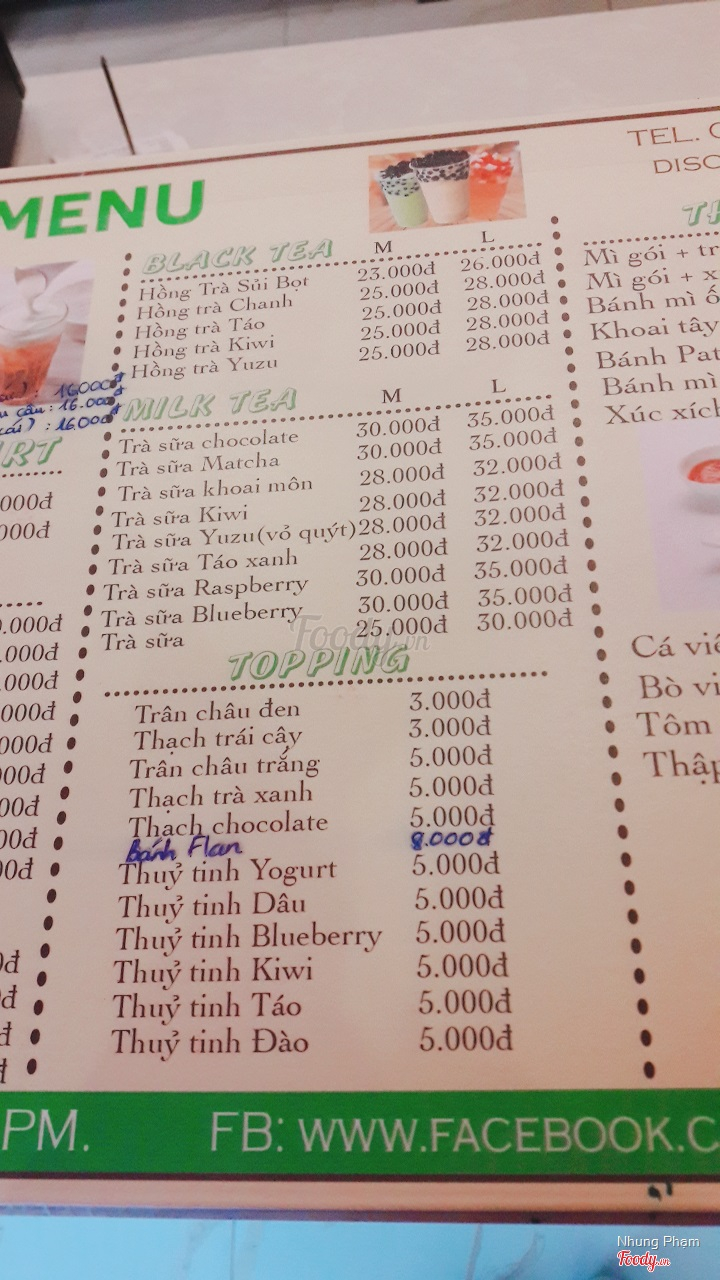 MENU
TEL.
DISC
BLACK TEA M L
Hồng Trà Sủi Bọt 23.000đ 26.000đ
Hồng trà Chanh 25.000đ 28.000đ
Hồng trà Táo 25.000đ 28.000đ
Hồng trà Kiwi 25.000đ 28.000đ
Hồng trà Yuzu 25.000đ 28.000đ
MILK TEA M L
Trà sữa chocolate 30.000đ 35.000đ
Trà sữa Matcha 30.000đ 35.000đ
Trà sữa khoai môn 28.000đ 32.000đ
Trà sữa Kiwi 28.000đ 32.000đ
Trà sữa Yuzu(vỏ quýt) 28.000đ 32.000đ
Trà sữa Táo xanh 28.000đ 32.000đ
Trà sữa Raspberry 30.000đ 35.000đ
Trà sữa Blueberry 30.000đ 35.000đ
Trà sữa 25.000đ 30.000đ
TOPPING
Trân châu đen 3.000đ
Thạch trái cây 3.000đ
Trân châu trắng 5.000đ
Thạch trà xanh 5.000đ
Thạch chocolate 5.000đ
Bánh Flan 8.000đ
Thuỷ tinh Yogurt 5.000đ
Thuỷ tinh Dâu 5.000đ
Thuỷ tinh Blueberry 5.000đ
Thuỷ tinh Kiwi 5.000đ
Thuỷ tinh Táo 5.000đ
Thuỷ tinh Đào 5.000đ
: 16.000đ
câu : 16.000đ
cái) : 16.000đ
RT
000đ
000đ
.000đ
.000đ
.000đ
000đ
000đ
00đ
00đ
00đ
0đ
đ
đ
đ
TH
Mì gói + tr
Mì gói + x
Bánh mì ố
Khoai tây
Bánh Pat
Bánh mì
Xúc xích
Cá viê
Bò vi
Tôm
Thập
PM. FB: WWW.FACEBOOK.C
Foody.vn
Nhung Phạm
Foody.vn